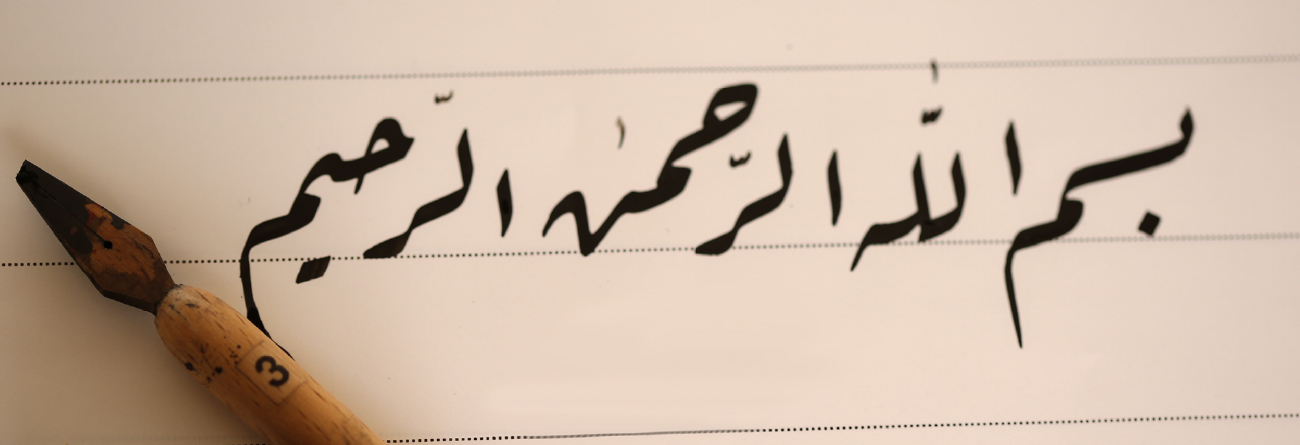 بسم اللّٰه الرّحمٰن الرّحيم
3